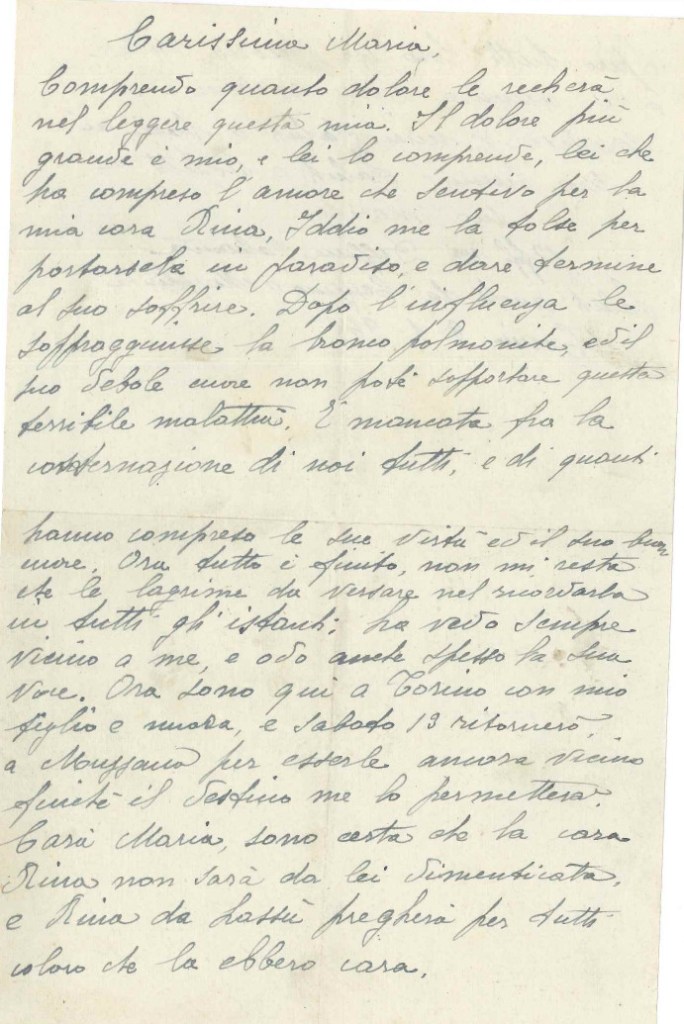 Carissima Maria,
Comprendo quanto dolore le recherà
nel leggere questa mia. Il dolore più
grande è mio, e lei lo comprende, lei che
ha compreso l'amore che sentivo per la
mia cara Rina, Iddio me la tolse per
portarsela in paradiso, e dare termine
al suo soffrire. Dopo l'influenza le
sopraggiunse la bronco polmonite, ed il
suo debole cuore non poté sopportare questa
terribile malattia. È mancata fra la
costernazione di noi tutti, e di quanti
hanno compreso le sue virtù ed il suo buon
cuore. Ora tutto è finito, non mi resta
che le lagrime da versare nel ricordarla
in tutti gli istanti; la vedo sempre
vicino a me, e odo anche spesso la sua
voce. Ora sono qui a Torino con mio
figlio e nuora, e sabato 13 ritornerò,
a Muzzano per esserle ancora vicino
finché il destino me lo permetterà.
Cara Maria, sono certa che la cara
Rina non sarà da lei dimenticata,
e Rina da lassù pregherà per tutti
coloro che la ebbero cara.